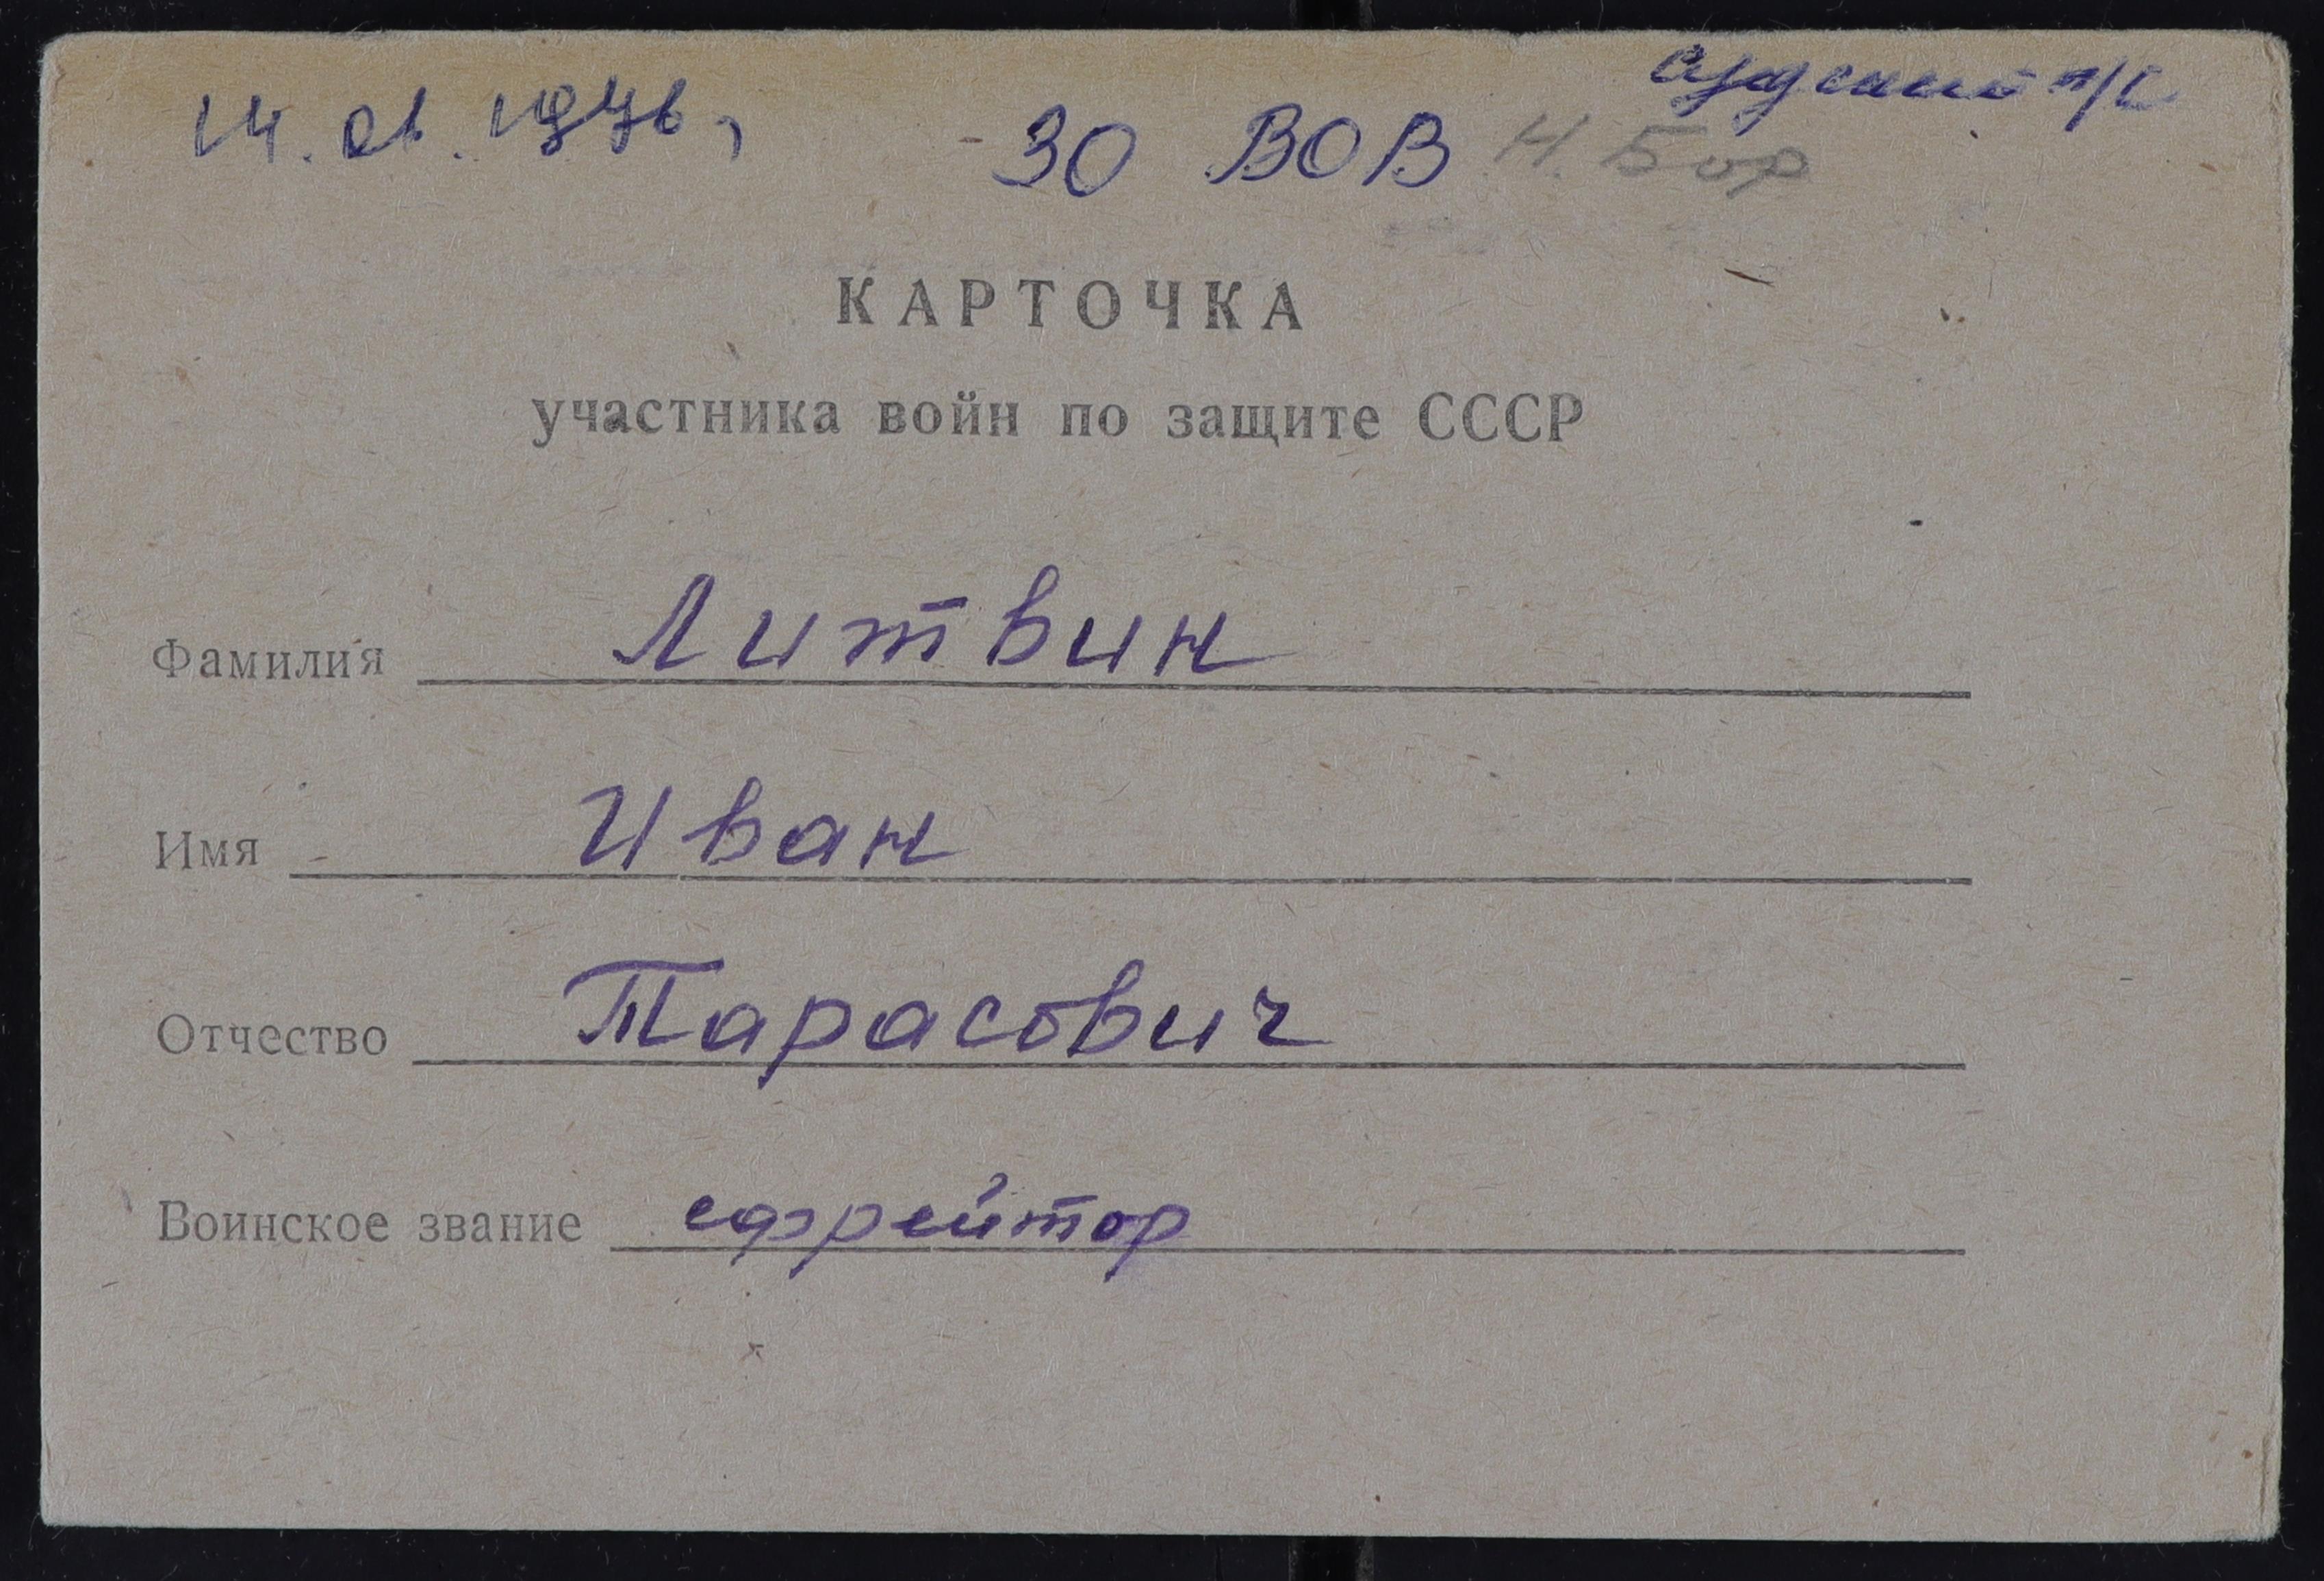 14.01.1976,
30 ВОВ Н. Бор
КАРТОЧКА
участника войн по защите СССР
Фамилия Литвин
Имя Иван
Отчество Тарасович
Воинское звание ефрейтор